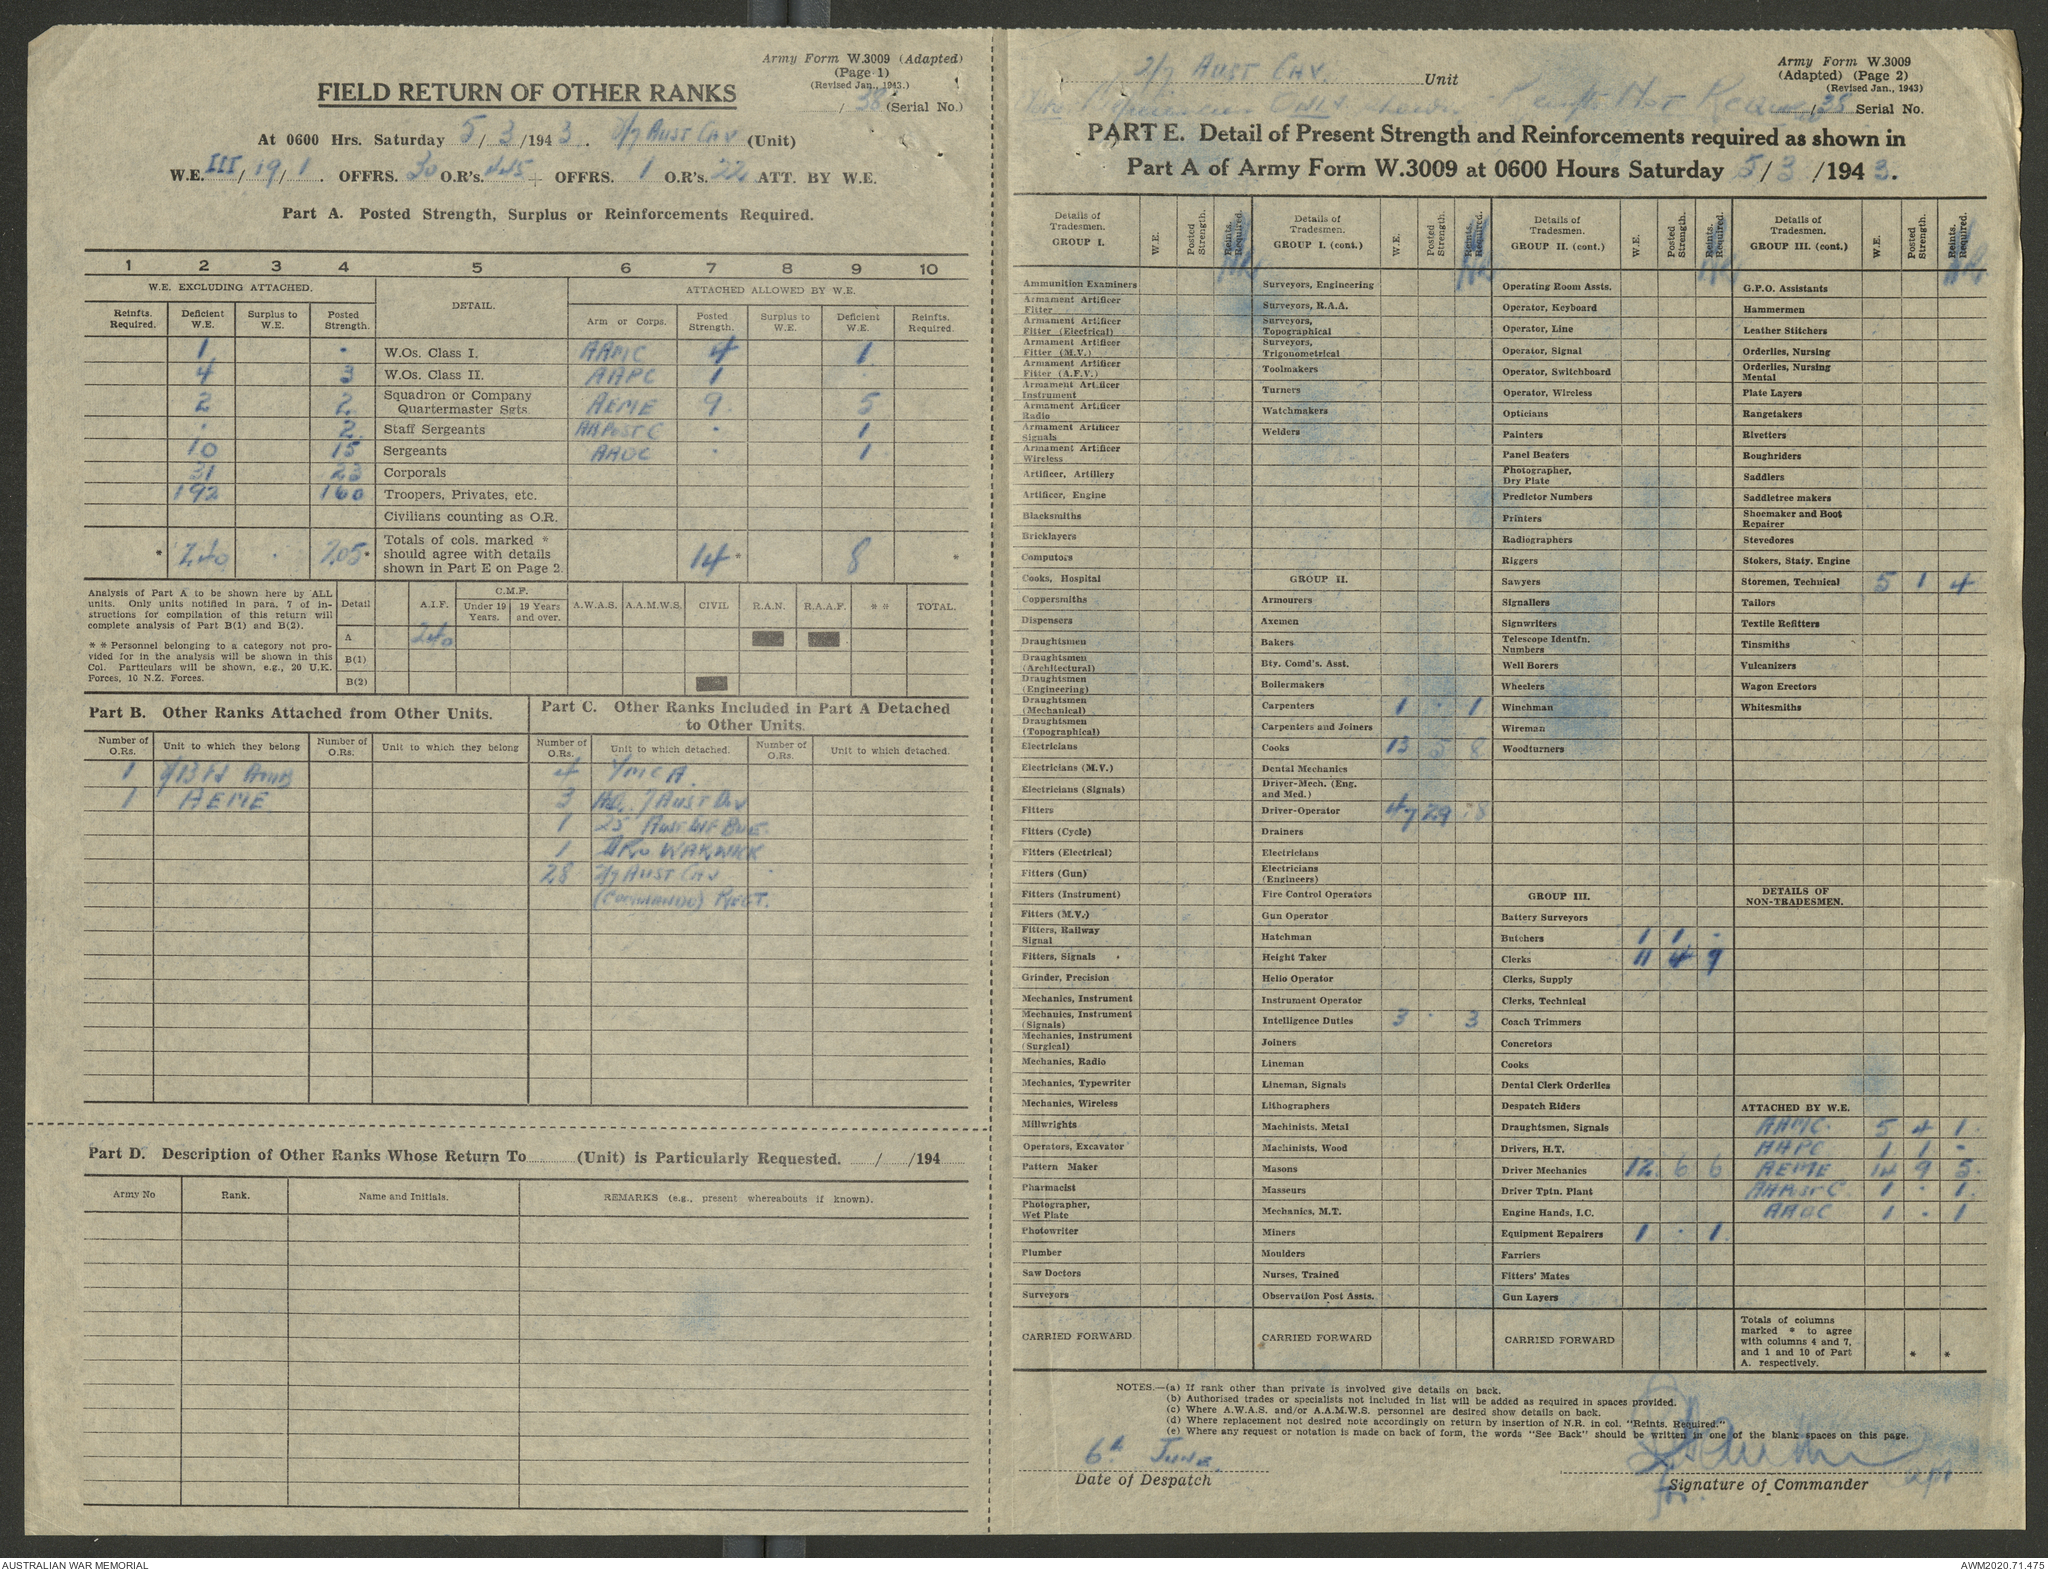 Army Form W.3009 (Adapted)
(Page 1)
(Revised Jan., 1943.)
/ 38 (Serial No.)
FIELD RETURN OF OTHER RANKS
At 0600 Hrs. Saturday 5/3/1943. 2/7 AUST CAV (Unit)
W.E. III/19/1. OFFRS. 30 O.R's. 445 + OFFRS. 1 O.R's. 22 ATT. BY W.E.
Part A. Posted Strength, Surplus or Reinforcements Required.
1 2 3 4 5 6 7 8 9 10
W.E. EXCLUDING ATTACHED. DETAIL. ATTACHED ALLOWED BY W.E.
Reinfts. Required. Deficient W.E. Surplus to W.E. Posted Strength. Arm or Corps. Posted Strength. Surplus to W.E. Deficient W.E. Reinfts. Required.
1 . W.Os. Class I. AAMC 4 1
4 3 W.Os. Class II. AAPC 1
2 2 Squadron or Company Quartermaster Sgts. AEME 9 5
. 2 Staff Sergeants AAPOST C . 1
10 15 Sergeants AAOC . 1
31 23 Corporals
192 160 Troopers, Privates, etc.
Civilians counting as O.R.
* 240 . 205* Totals of cols. marked * should agree with details shown in Part E on Page 2. 14* 8 *
Analysis of Part A to be shown here by ALL units. Only units notified in para. 7 of instructions for compilation of this return will complete analysis of Part B(1) and B(2).
* * Personnel belonging to a category not provided for in the analysis will be shown in this Col. Particulars will be shown, e.g., 20 U.K. Forces, 10 N.Z. Forces.
Detail A.I.F. C.M.F. Under 19 Years. 19 Years and over. A.W.A.S. A.A.M.W.S. CIVIL R.A.N. R.A.A.F. * * TOTAL.
A 240
B(1)
B(2)
Part B. Other Ranks Attached from Other Units.
Part C. Other Ranks Included in Part A Detached to Other Units.
Number of O.Rs. Unit to which they belong Number of O.Rs. Unit to which they belong Number of O.Rs. Unit to which detached. Number of O.Rs. Unit to which detached.
1 4 YMCA
1 AEME 3 HQ. 7 AUST DIV
1 25 AUST INF BDE
1 WARWICK
28 2/7 AUST CAV
(COMMANDO) REGT.
Part D. Description of Other Ranks Whose Return To (Unit) is Particularly Requested. / /194
Army No Rank. Name and Initials. REMARKS (e.g., present whereabouts if known).
2/7 AUST CAV Unit
Army Form W.3009
(Adapted) (Page 2)
(Revised Jan., 1943)
/38 Serial No.
ONLY Reinfts Not
PART E. Detail of Present Strength and Reinforcements required as shown in
Part A of Army Form W.3009 at 0600 Hours Saturday 5/3/1943.
Details of Tradesmen. GROUP I. W.E. Posted Strength. Reints. Required.
Ammunition Examiners
Armament Artificer Fitter
Armament Artificer Fitter (Electrical)
Armament Artificer Fitter (M.V.)
Armament Artificer Fitter (A.F.V.)
Armament Artificer Instrument
Armament Artificer Radio
Armament Artificer Signals
Armament Artificer Wireless
Artificer, Artillery
Artificer, Engine
Blacksmiths
Bricklayers
Computors
Cooks, Hospital
Coppersmiths
Dispensers
Draughtsmen
Draughtsmen (Architectural)
Draughtsmen (Engineering)
Draughtsmen (Mechanical)
Draughtsmen (Topographical)
Electricians
Electricians (M.V.)
Electricians (Signals)
Fitters
Fitters (Cycle)
Fitters (Electrical)
Fitters (Gun)
Fitters (Instrument)
Fitters (M.V.)
Fitters, Railway Signal
Fitters, Signals
Grinder, Precision
Mechanics, Instrument
Mechanics, Instrument (Signals)
Mechanics, Instrument (Surgical)
Mechanics, Radio
Mechanics, Typewriter
Mechanics, Wireless
Millwrights
Operators, Excavator
Pattern Maker
Pharmacist
Photographer, Wet Plate
Photowriter
Plumber
Saw Doctors
Surveyors
CARRIED FORWARD
Details of Tradesmen. GROUP I. (cont.) W.E. Posted Strength. Reints. Required.
Surveyors, Engineering
Surveyors, R.A.A.
Surveyors, Topographical
Surveyors, Trigonometrical
Toolmakers
Turners
Watchmakers
Welders
GROUP II.
Armourers
Axemen
Bakers
Bty. Comd's. Asst.
Boilermakers
Carpenters 1 . 1
Carpenters and Joiners
Cooks 13 5 8
Dental Mechanics
Driver-Mech. (Eng. and Med.)
Driver-Operator 47 29 18
Drainers
Electricians
Electricians (Engineers)
Fire Control Operators
Gun Operator
Hatchman
Height Taker
Helio Operator
Instrument Operator
Intelligence Duties 3 . 3
Joiners
Lineman
Lineman, Signals
Lithographers
Machinists, Metal
Machinists, Wood
Masons
Masseurs
Mechanics, M.T.
Miners
Moulders
Nurses, Trained
Observation Post Assts.
CARRIED FORWARD
Details of Tradesmen. GROUP II. (cont.) W.E. Posted Strength. Reints. Required.
Operating Room Assts.
Operator, Keyboard
Operator, Line
Operator, Signal
Operator, Switchboard
Operator, Wireless
Opticians
Painters
Panel Beaters
Photographer, Dry Plate
Predictor Numbers
Printers
Radiographers
Riggers
Sawyers
Signallers
Signwriters
Telescope Identfn. Numbers
Well Borers
Wheelers
Winchman
Wireman
Woodturners
GROUP III.
Battery Surveyors
Butchers 1 1 -
Clerks 11 4 7
Clerks, Supply
Clerks, Technical
Coach Trimmers
Concretors
Cooks
Dental Clerk Orderlies
Despatch Riders
Draughtsmen, Signals
Drivers, H.T.
Driver Mechanics 12 6 6
Driver Tptn. Plant
Engine Hands, I.C.
Equipment Repairers 1 . 1
Farriers
Fitters' Mates
Gun Layers
CARRIED FORWARD
Details of Tradesmen. GROUP III. (cont.) W.E. Posted Strength. Reints. Required.
G.P.O. Assistants
Hammermen
Leather Stitchers
Orderlies, Nursing
Orderlies, Nursing Mental
Plate Layers
Rangetakers
Rivetters
Roughriders
Saddlers
Saddletree makers
Shoemaker and Boot Repairer
Stevedores
Stokers, Staty. Engine
Storemen, Technical 5 1 4
Tailors
Textile Refitters
Tinsmiths
Vulcanizers
Wagon Erectors
Whitesmiths
DETAILS OF NON-TRADESMEN.
ATTACHED BY W.E.
AAMC. 5 4 1
AAPC 1 1 -
AEME 14 9 5
AAPOST C. 1 - 1
AAOC 1 - 1
Totals of columns marked * to agree with columns 4 and 7, and 1 and 10 of Part A. respectively. * *
NOTES.—(a) If rank other than private is involved give details on back.
(b) Authorised trades or specialists not included in list will be added as required in spaces provided.
(c) Where A.W.A.S. and/or A.A.M.W.S. personnel are desired show details on back.
(d) Where replacement not desired note accordingly on return by insertion of N.R. in col. "Reints. Required."
(e) Where any request or notation is made on back of form, the words "See Back" should be written in one of the blank spaces on this page.
6th June
Date of Despatch
Signature of Commander
for.
AUSTRALIAN WAR MEMORIAL
AWM2020.71.475